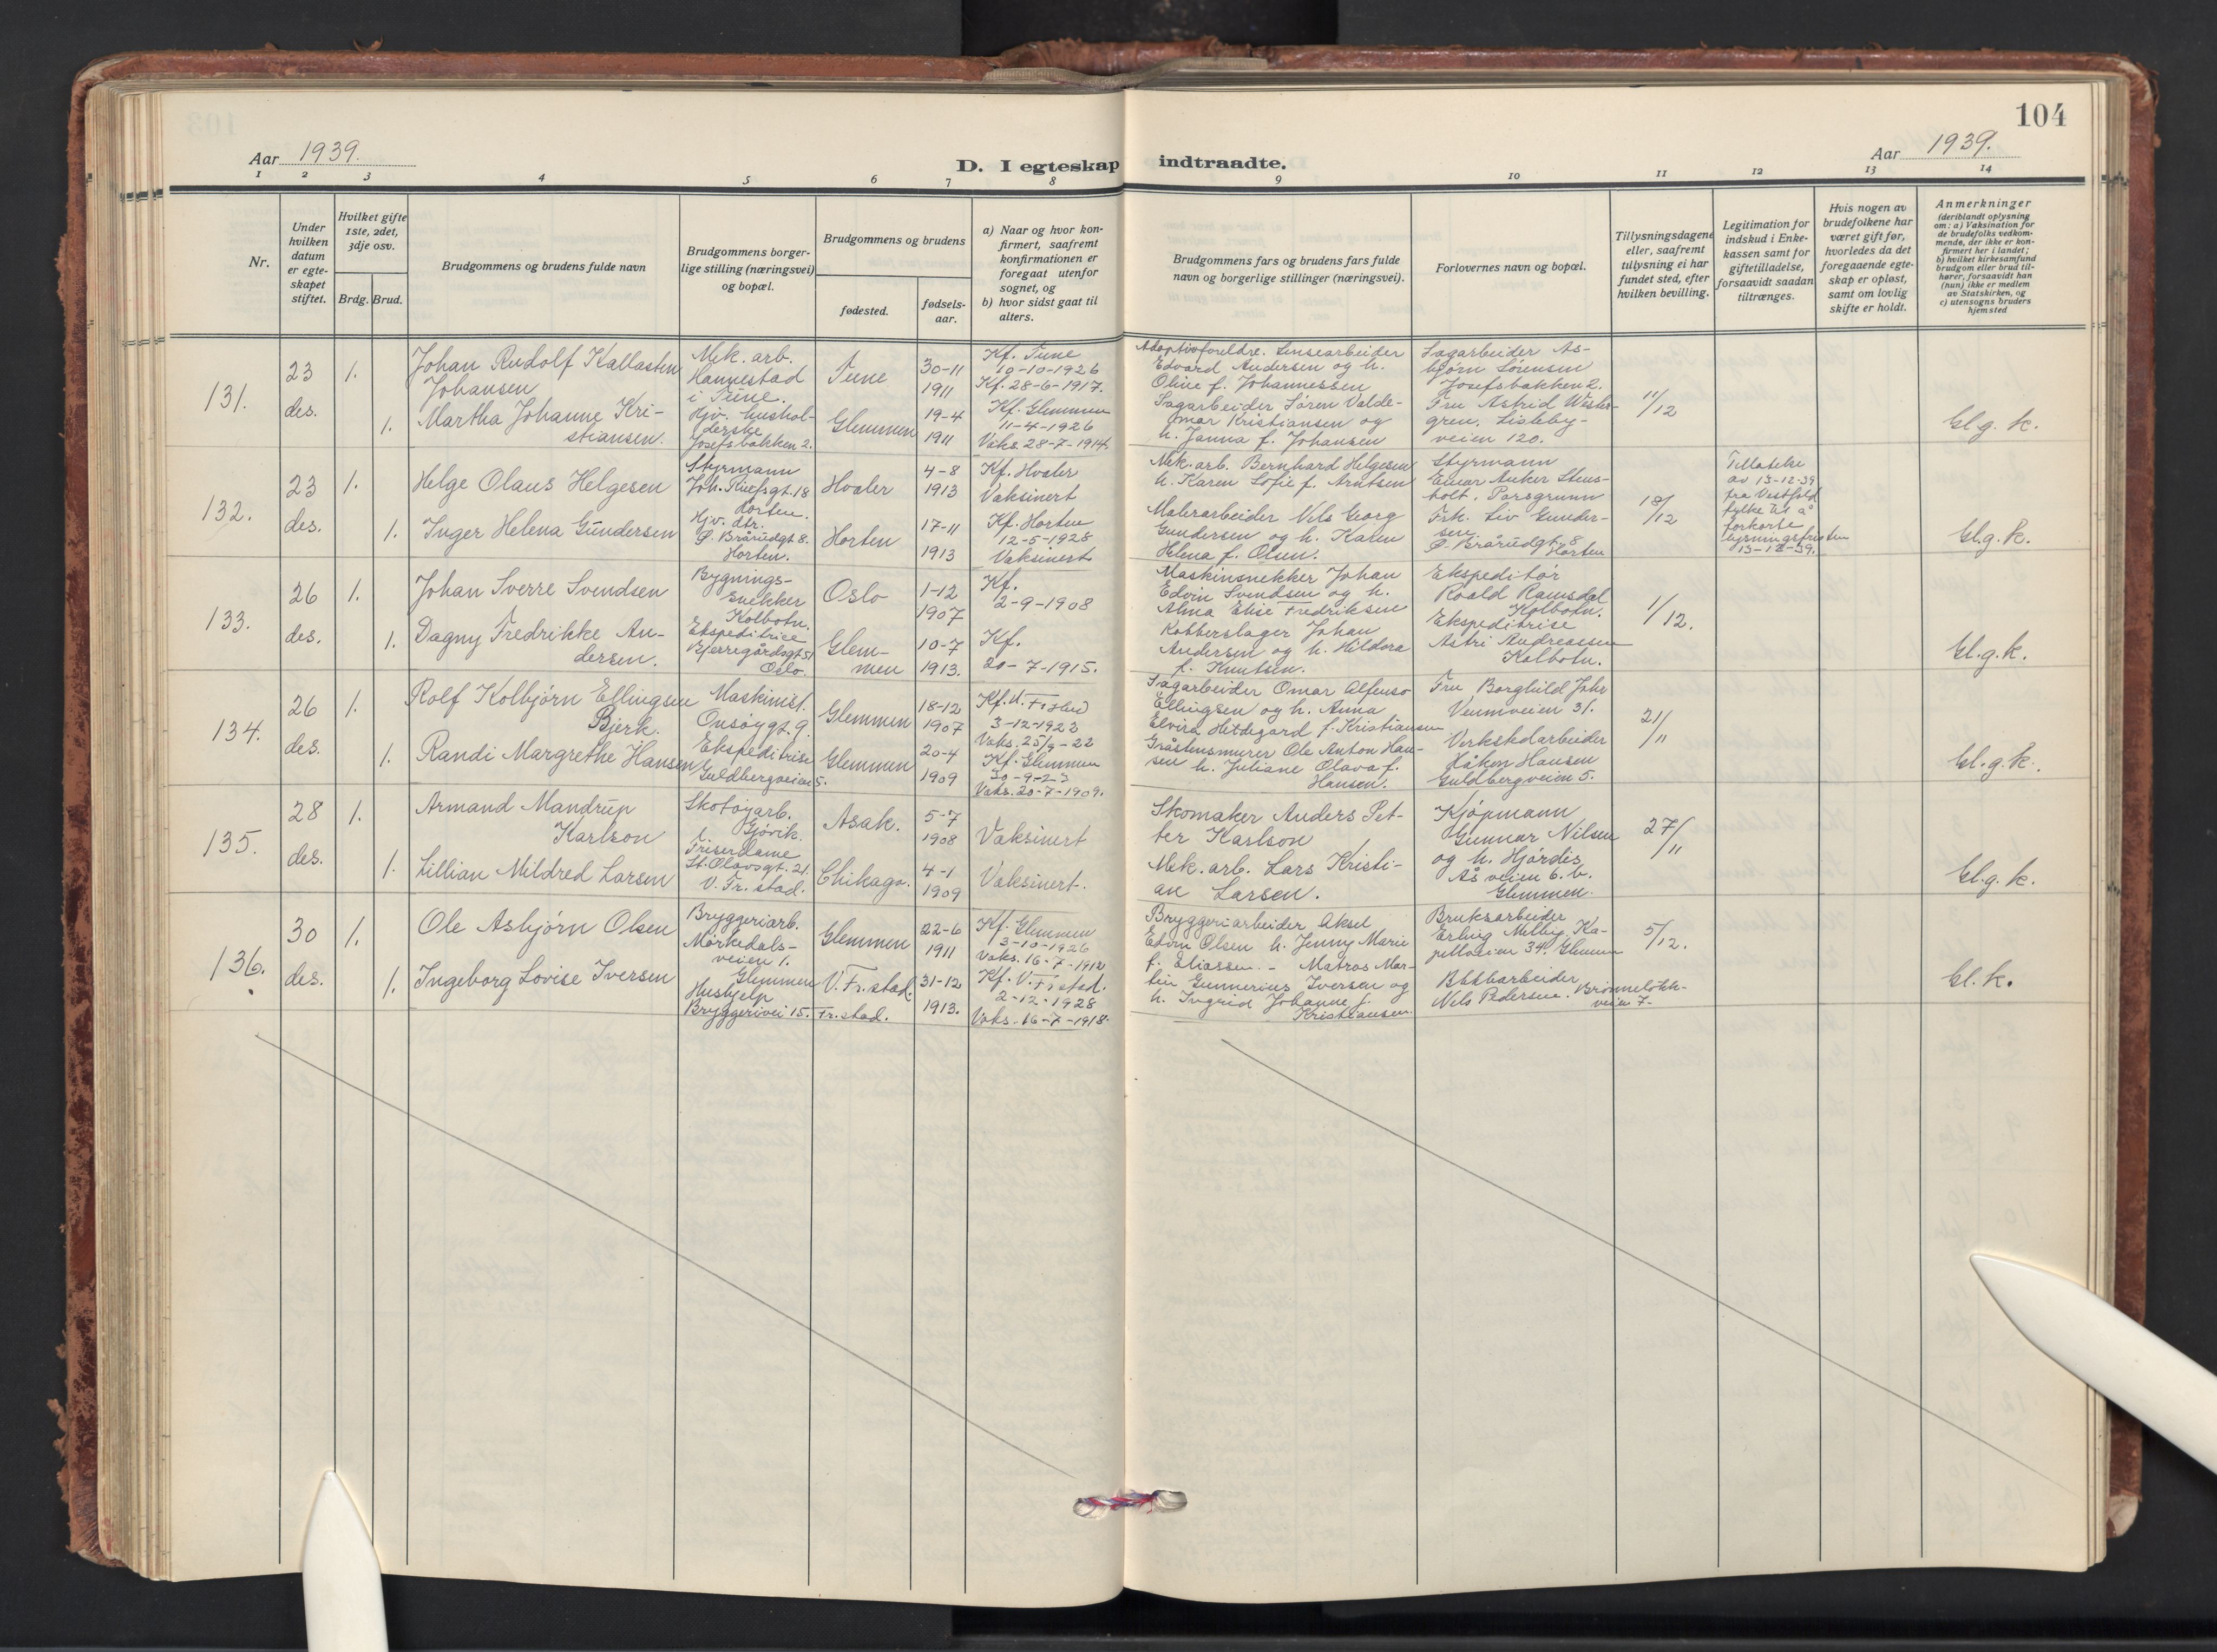 104
Aar 1939.
D. I egteskap indtraadte.
Aar 1939.
1 2 3 4 5 6 7 8 9 10 11 12 13 14
Nr.
Under
hvilken
datum
er egte-
skapet
stiftet.
Hvilket gifte
1ste, 2det,
3dje osv.
Brdg. Brud.
Brudgommens og brudens fulde navn
Brudgommens borger-
lige stilling (næringsvei)
og bopæl.
Brudgommens og brudens
fødested.
fødsels-
aar.
a) Naar og hvor kon-
firmert, saafremt
konfirmationen er
foregaat utenfor
sognet, og
b) hvor sidst gaat til
alters.
Brudgommens fars og brudens fars fulde
navn og borgerlige stillinger (næringsvei).
Forlovernes navn og bopæl.
Tillysningsdagene
eller, saafremt
tillysning ei har
fundet sted, efter
hvilken bevilling.
Legitimation for
indskud i Enke-
kassen samt for
giftetilladelse,
forsaavidt saadan
tiltrænges.
Hvis nogen av
brudefolkene har
været gift før,
hvorledes da det
foregaaende egte-
skap er opløst,
samt om lovlig
skifte er holdt.
Anmerkninger
(deriblandt oplysning
om: a) Vaksination for
de brudefolks vedkom-
mende, der ikke er kon-
firmert her i landet;
b) hvilket kirkesamfund
brudgom eller brud til-
hører, forsaavidt han
(hun) ikke er medlem
av Statskirken, og
c) utensogns bruders
hjemsted
131.
23
des.
1.
1.
Johan Rudolf Kallasten
Johansen
Martha Johanne Kri-
stiansen.
Mek. arb.
Hannestad
i Tune.
Hjv. hushol-
derske
Josefsbakken 2.
Tune
Glemmen
30-11
1911
19-4
1911
Kf. Tune
10-10-1926
Kf. 28-6-1917.
Kf. Glemmen
11-4-1926
Vaks. 28-7-1914.
Adoptivforeldre. Lensearbeider
Edvard Andersen og h.
Oline f. Johannessen
Sagarbeider Søren Valde-
mar Kristiansen og
h. Janna f. Johansen
Sagarbeider As-
bjørn Sørensen
Josefsbakken 2.
Fru Astrid Wester-
gren, Lisleby-
veien 120.
11/12
Gl.g.k.
132.
23
des.
1.
1.
Helge Olaus Helgesen
Inger Helena Gundersen
Styrmann
Joh. Thiefsgt. 18
Horten.
Hjv. dtr.
P. Brårudgt 8.
Horten.
Hvaler
Horten
4-8
1913
17-11
1913
Kf. Hvaler
Vaksinert
Kf. Horten
12-5-1928
Vaksinert
Mek. arb. Bernhard Helgesen
h. Karen Sofie f. Arntsen
Malerarbeider Nels Georg
Gundersen og h. Karen
Helena f. Olsen.
Styrmann
Einar Anker Stens-
holt, Porsgrunn
Frk. Liv Gunder-
sen
P. Brårudgt. 8
Horten
18/12
Tillatelse
av 13-12-39
fra Vestfold
fylke til å
forkorte
lysningsfristen
13-12-39.
Gl.g.k.
133.
26
des.
1.
1.
Johan Sverre Svendsen
Dagny Fredrikke An-
dersen.
Bygnings-
snekker
Kolbotn.
Ekspeditrice
Bjerregårdsgt 51
Oslo.
Oslo
Glem-
men
1-12
1907
10-7
1913.
Kf.
2-9-1908
Kf.
20-7-1915.
Maskinsnekker Johan
Edvin Svendsen og h.
Alma Elise Fredriksen
Kobberslager Johan
Andersen og h. Hildora
f. Knutsen.
Ekspeditør
Roald Ramsdal
Kolbotn.
Ekspeditrise
Astri Andreassen
Kolbotn.
1/12.
Gl.g.k.
134.
26
des.
1.
1.
Rolf Kolbjørn Ellingsen
Bjerk.
Randi Margrethe Hansen
Maskinist.
Onsøygt. 9.
Ekspeditrise
Guldbergveien 5.
Glemmen
Glemmen
18-12
1907
20-4
1909
3-12-1923
Vaks. 25/9-22
Kf. Glemmen
30-9-23
Vaks. 20-7-1909.
Sagarbeider Omar Alfonso
Ellingsen og h. Anna
Elvira Hildegard f. Kristiansen
Gråstensmurer Ole Anton Han-
sen h. Juliane Olava f.
Hansen.
Fru Borghild Johr
Veumveien 31.
Verkstdarbeider
Håkon Hansen
Guldbergveien 5.
21/11
Gl.g.k.
135.
28
des.
1.
1.
Armand Mandrup
Karlson
Lillian Mildred Larsen
Skotøyarb.
Gjøvik.
Friserdame
St. Olavsgt. 21.
V. Fr. stad.
Asak.
Chikago.
5-7
1908
4-1
1909
Vaksinert
Vaksinert.
Skomaker Anders Pet-
ter Karlson
Mek. arb. Lars Kristi-
an Larsen.
Kjøpmann
Gunnar Nilsen
og h. Hjørdis
Ås veien 6. b.
Glemmen.
27/11
Gl.g.k.
136.
30
des.
1.
1.
Ole Asbjørn Olsen
Ingeborg Lovise Iversen
Bryggeriarb.
Mørkedals-
veien 1.
Glemmen
Hushjelp
Bryggerivei 15. Fr. stad.
Glemmen
V. Fr. stad.
22-6
1911
31-12
1913.
Kf. Glemmen
3-10-1926
Vaks. 16-7-1912
Kf. V. Fr stad.
2-12-1928
Vaks. 16-7-1918.
Bryggeriarbeider Aksel
Edvin Olsen h. Jenny Marie
f. Eliassen. - Matros Mar-
tin Gunnerius Iversen og
h. Ingrid Johanne f.
Kristiansen
Bruksarbeider
Erling Melby, Ka-
pellveien 34. Glemmen
Nels Pedersen. Brønneløkk-
veien 7.
5/12.
Gl.k.